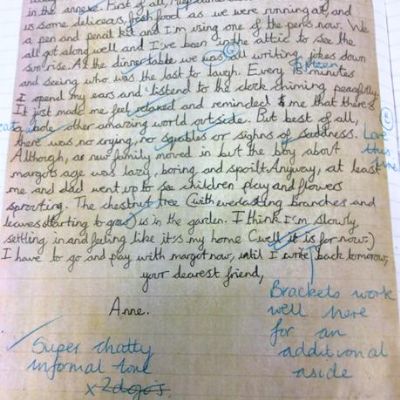 in the annexe. First of all,
is some delicears, fresh food as we were running out and
a pen and pencil kit and I'm using one of the pens now. We
all got along well and I've been in the attic to see the
sunrise. At the dinner table we was all writing jokes down
and seeing who was the last to laugh. Every 15 minutes
fifteen
I opend my ears and listend to the clock chiming peacfully.
It just made me feel relaxed and reminded me that there's
a whole other amazing world outside. But best of all,
there was no crying, no squables or sighns of saddness.
Love this line
Although, a new family moved in but the boy about
margots age was lazy, boring and spoilt. Anyway, at least
me and dad went up to see children play and flowers
sprouting. The chestnut tree (with everlasting branches and
leaves starting to grow) is in the garden. I think I'm slowly
settling in and feeling like it's my home (well it is for now.)
I have to go and play with margot now, until I write back tomorrow,
your dearest friend,
Anne.
Brackets work
well here
for an
additional
aside
Super chatty
informal tone
x 2 dojo's